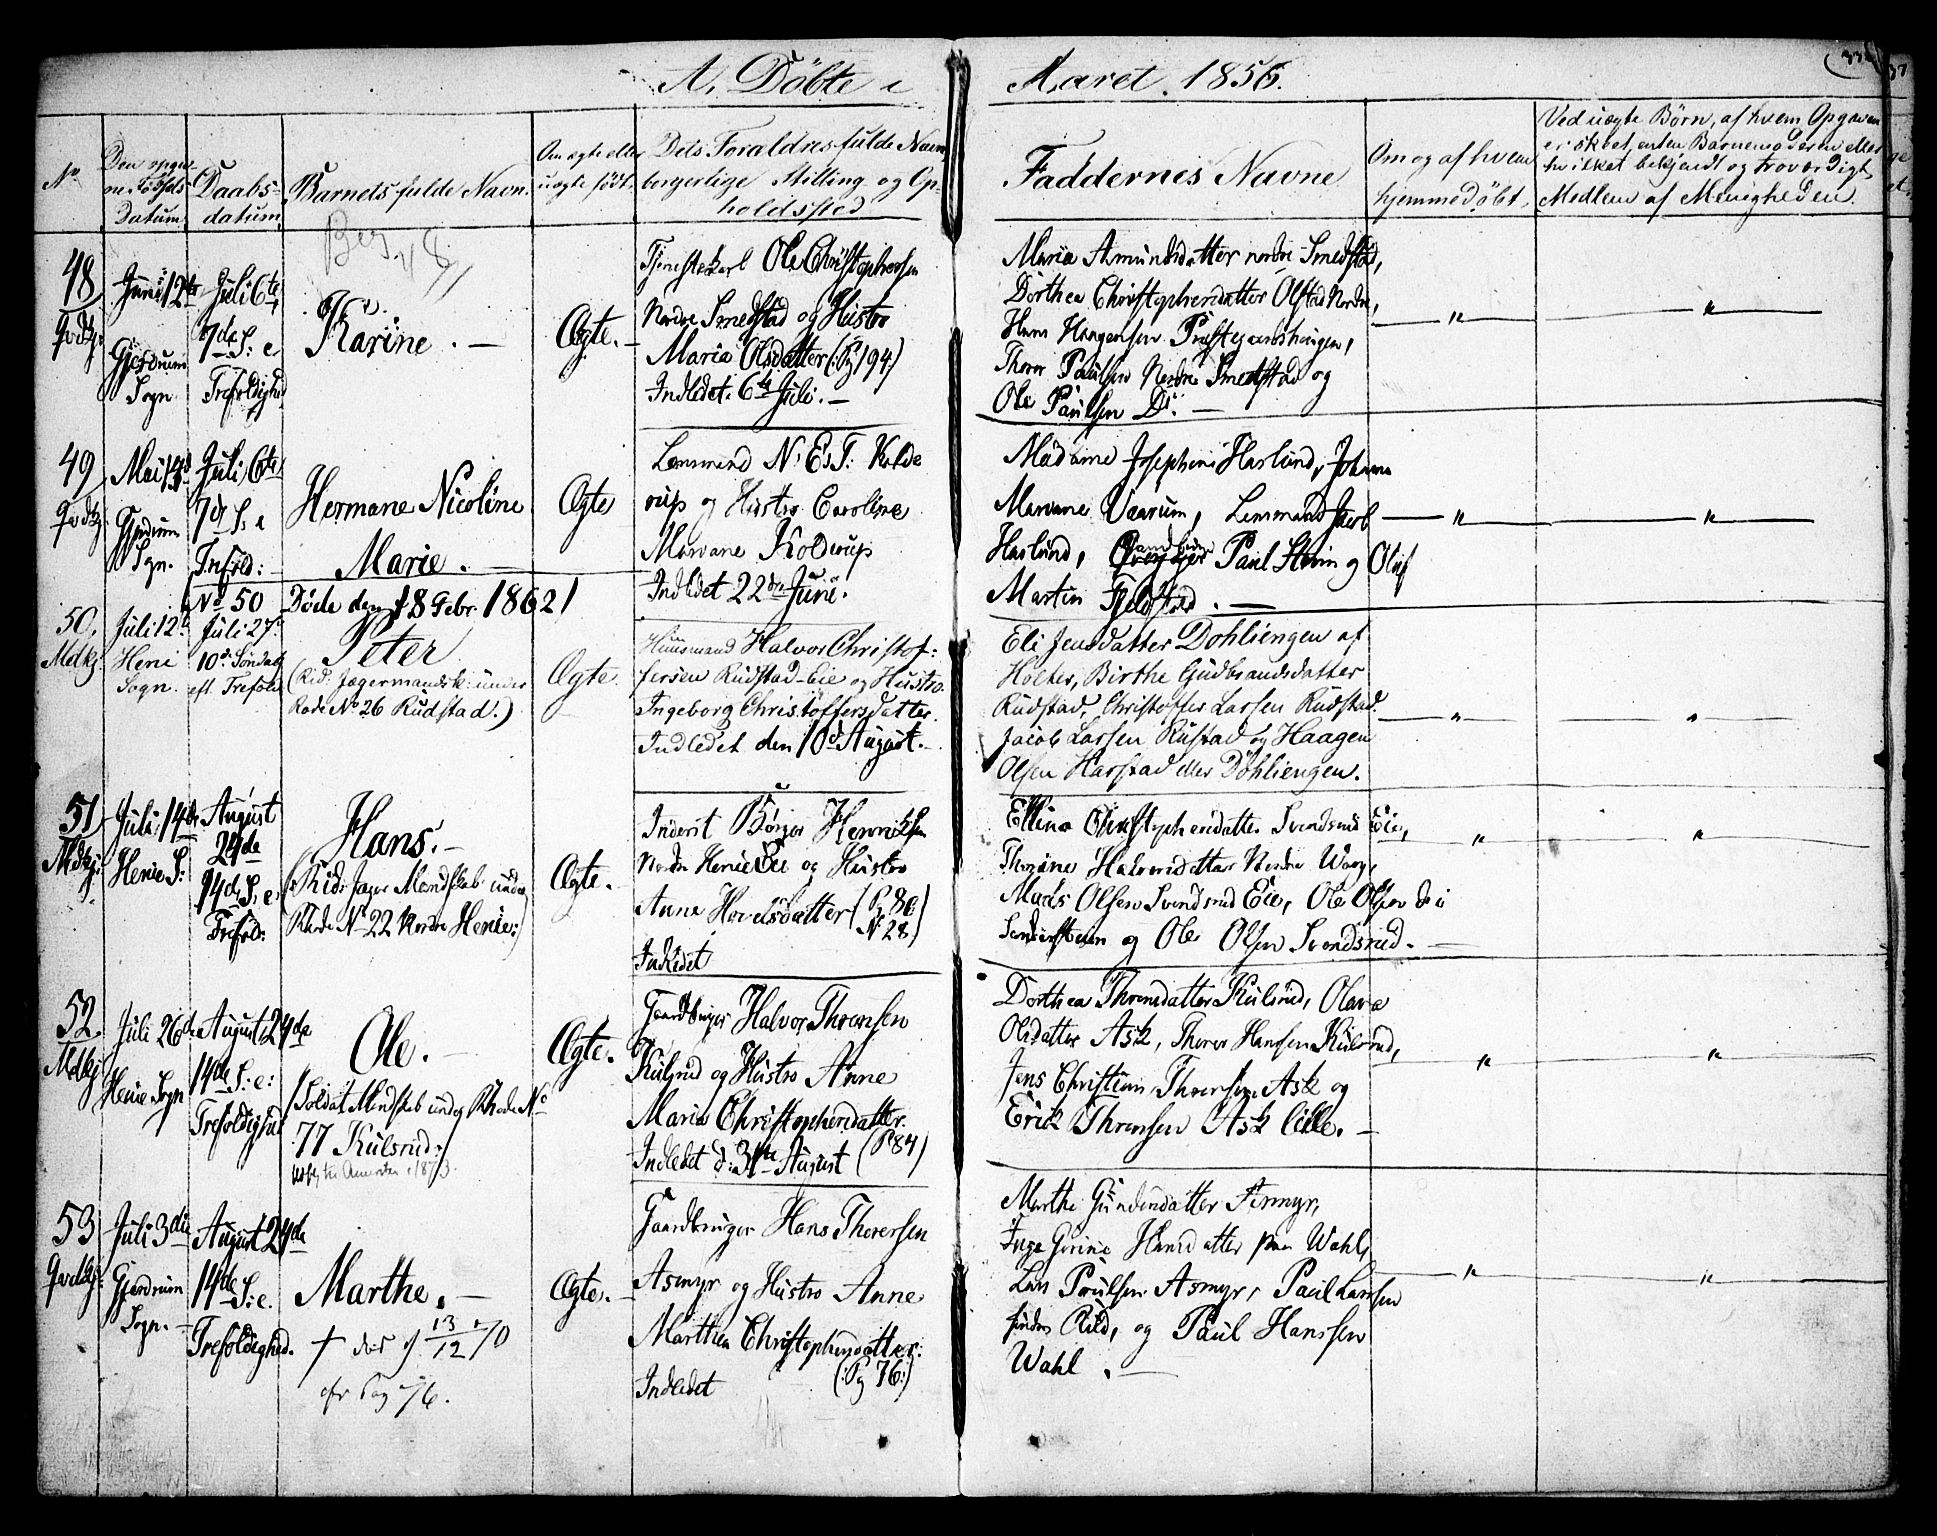 A. Döbte i Aaret. 1856.
No
Den opgivne Födsels Datum.
Daabsdatum.
Barnets fulde Navn.
Om ægte eller uægte født.
Dets Forældres fulde Navn borgerlige Stilling og Opholdssted
Faddernes Navne
Om og af hvem hjemmedøbt.
Ved uægte Børn, af hvem Opgaven er skeet, enten Barnemoderen eller hvilket bekjendt og troværdigt Medlem af Menigheden.
48
Juni 12te
Gjerdrum
Sogn
Juli 6te,
7de S: e
Trefoldighed
Karine. —
Ægte. —
Tjenestekarl Ole Christophersen
Nordre Smedstad og Hustro
Maria Olsdatter (: Pg 194)
Indledet. 6te Juli. —
Maria Amundsdatter nordre Smedstad,
Dorthea Christophersdatter Olstad Nordre,
Hans Haagensen
Thorer Paulsen Nordre Smedstad og
Ole Paulsen Do. —
— " —
— " —
49
Mai
Gjerdrum
Sogn.
Juli 6te
7de S: e
Trefold: —
Hermane Nicoline
Marie. —
Ægte
Lensmand N. E. T. Kolde
rup og Hustro Caroline
Marvane Kolderup
Indledet 22de Juni.
Madame Josephine Haslund, Johanne
Marvane Vaarum, Lensmand Jacob
Haslund, Paul Steen og Oluf
Martin Fjeldstad. —
— " —
— " —
No 50 Døde den 18 Febr. 1862
50.
Mdkj:
Juli 12te
Heni
Sogn.
Juli 27de
10de Søndag
eft. Trefold
Peter
(Rid: Jægermandsk: under
Rode No 26 Rudstad.)
Ægte.
Huusmand Halvor Christof:
fersen Rudstad-Eie og Hustro.
Ingeborg Christoffersdatter.
Indledet den 10de August. —
Eli Jensdatter Dohliengen af
Holter, Birthe Gudbrandsdatter
Rudstad. Christoffer Larsen Rudstad.
Jacob Larsen Rustad og Haagen
Olsen Harstad eller Döhliengen.
— " —
— " —
51
Mdkj:
Juli 14de
Henie S:
August
24de
14de S. e.
Trefold:
Hans. —
(: Rid: Jæger Mandskab under
Rhode No 22 Nordre Henie:)
Ægte.
Inderst Börger Henriksen
Nordre Henie Eie og Hustro
Anne Hovelsdatter (P. 80
N. 28)
Indledet
Elline Christophersdatter Svendsrud Eie,
Thorine Halvorsdatter Nordre
Mads Olsen Svendsrud Eie, Ole Olsen
og Ole Olsen Svendsrud. —
"
"
52.
Mdkj
Juli 26de
Henie Sogn
August 24de
14de S: e:
Trefoldighed
Ole. —
(Soldat Mandskab under Rhode No
77 Kulsrud:)
Ægte.
Gaardbruger Halvor Thorersen
Kulsrud og Hustro Anne
Maria Christophersdatter.
Indledet d: 31te August (P 84)
Dorthea Thorersdatter Kulsrud, Olava
Olsdatter Ask, Thorer Hansen Kulsrud,
Jens Christian Thorersen Ask og
Erick Thorersen Ask lille. —
"
"
53
Juli 3die
Gjerdrum
Sogn. —
August 24de
14de S: e.
Trefoldighed.
Marthe. —
† död 13/12 70
cfr Pag 76.
Ægte. —
Gaardbruger Hans Thorersen
Asmyr og Hustro Anne
Marthea Christophersdatter.
(: Pg 76:)
Indledet
Marthe Gundersdatter Asmyr,
Inge Gurine Hansdatter paa Wahl,
Lars Poulsen Asmyr, Paul Larsen
Rud, og Paul Hanssen
Wahl. —
— " —
"